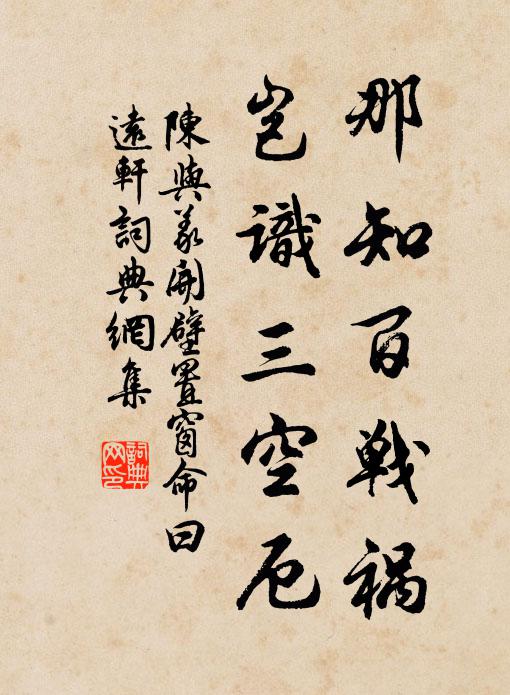 那知百戰禍
豈識三空厄
陳與義開壁置窗命曰
遠軒詞典網集
詞典网印